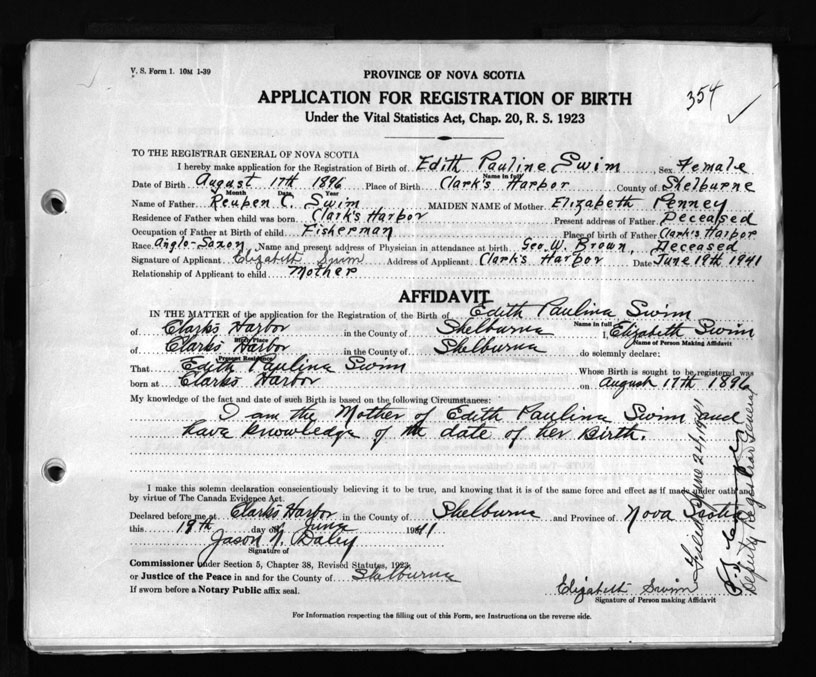 V. S. Form 1. 10M 1-39
PROVINCE OF NOVA SCOTIA
354
APPLICATION FOR REGISTRATION OF BIRTH
Under the Vital Statistics Act, Chap. 20, R. S. 1923
TO THE REGISTRAR GENERAL OF NOVA SCOTIA
I hereby make application for the Registration of Birth of Edith Pauline Swim Sex Female
Name in full
Date of Birth August 17th 1896 Place of Birth Clark's Harbor County of Shelburne
Month Date Year
Name of Father Reuben C. Swim MAIDEN NAME of Mother Elizabeth Penney
Residence of Father when child was born Clark's Harbor Present address of Father Deceased
Occupation of Father at Birth of child Fisherman Place of birth of Father Clark's Harbor
Race Anglo-Saxon Name and present address of Physician in attendance at birth Geo. W. Brown, Deceased
Signature of Applicant Elizabeth Swim Address of Applicant Clark's Harbor Date June 19th 1941
Relationship of Applicant to child Mother
AFFIDAVIT
IN THE MATTER of the application for the Registration of the Birth of Edith Pauline Swim
Name in full
of Clarks Harbor in the County of Shelburne I, Elizabeth Swim
Birth Place Name of Person Making Affidavit
of Clarks Harbor in the County of Shelburne do solemnly declare:
Present Residence
That Edith Pauline Swim Whose Birth is sought to be registered was
born at Clarks Harbor on August 17th 1896
My knowledge of the fact and date of such Birth is based on the following Circumstances:
I am the Mother of Edith Pauline Swim and
have knowledge of the date of her Birth.
I make this solemn declaration conscientiously believing it to be true, and knowing that it is of the same force and effect as if made under oath and
by virtue of The Canada Evidence Act.
Declared before me at Clarks Harbor in the County of Shelburne and Province of Nova Scotia
this 19th day of June 1941
Jason N. Daley
Signature of
Commissioner under Section 5, Chapter 38, Revised Statutes, 1923
or Justice of the Peace in and for the County of Shelburne
If sworn before a Notary Public affix seal.
Elizabeth Swim
Signature of Person making Affidavit
For Information respecting the filling out of this Form, see Instructions on the reverse side.
Filed June 24, 1941
Deputy Registrar General